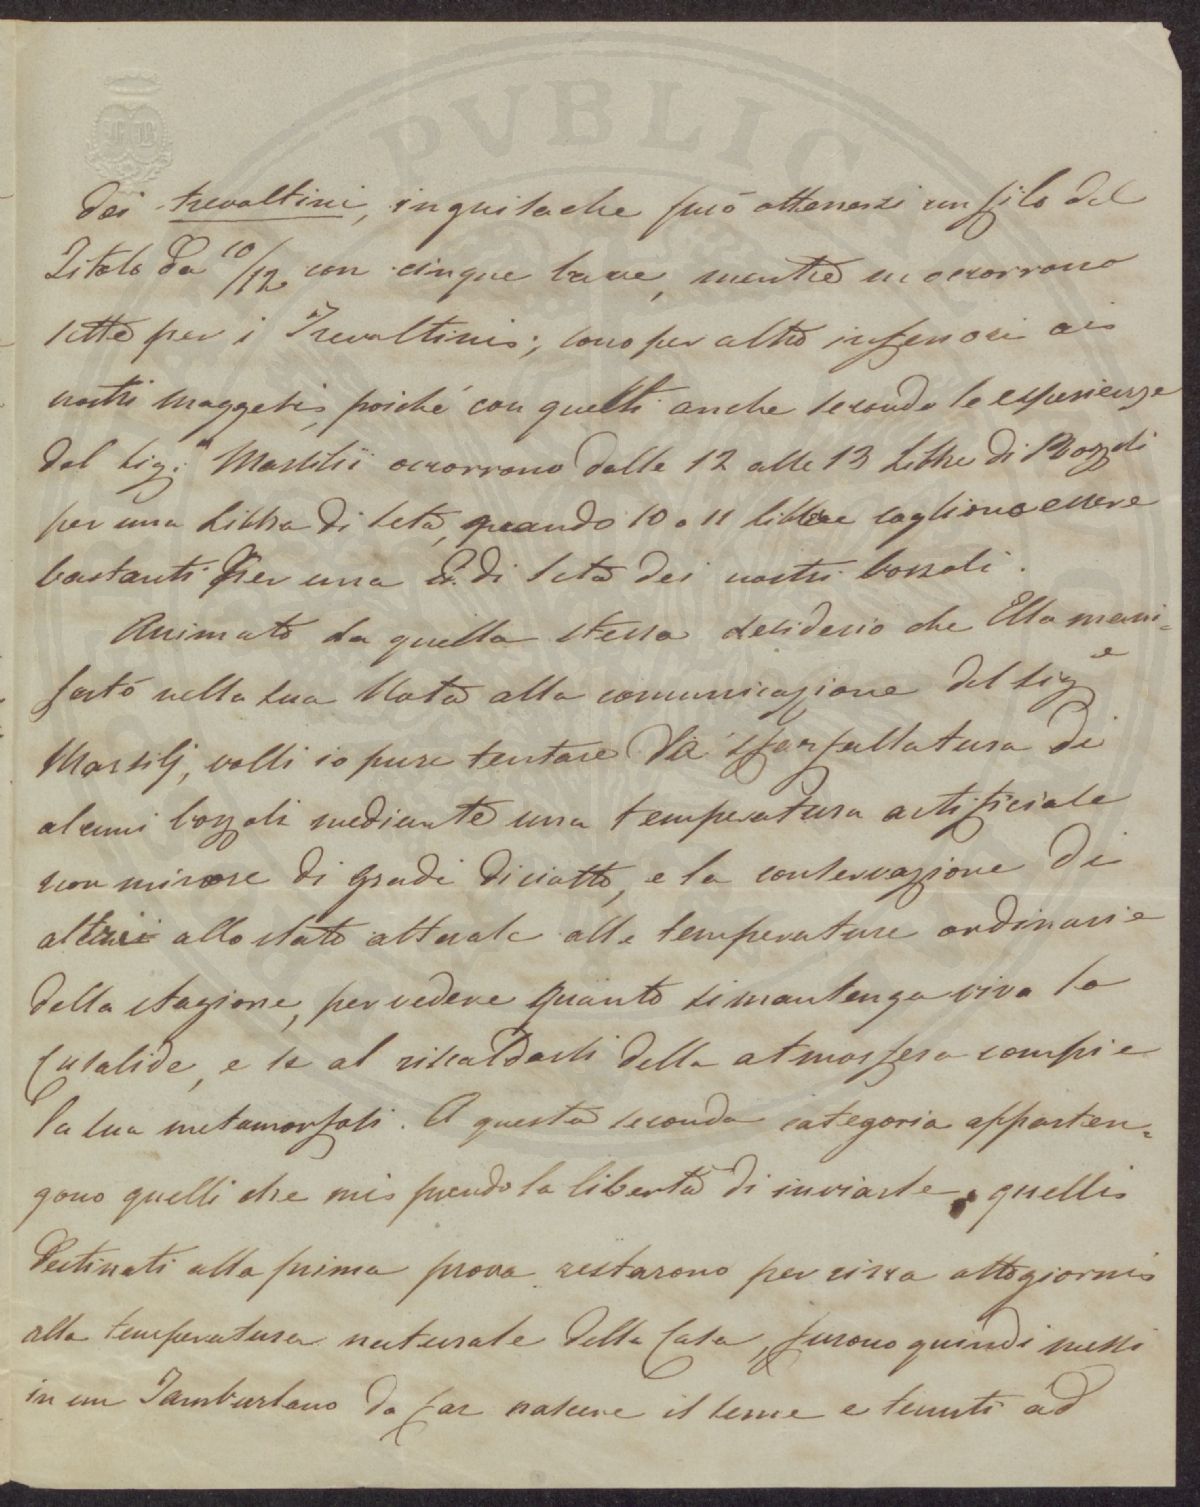 PVBLIC
dei trevoltini, inguisache può ottenersi un filo del
Titolo da 10/12 con cinque bave, mentre ne occorrono
sette per i Trevoltini; sono per altro inferiori ai
nostri maggesi, poiché con quelli anche secondo le esperienze
del Sig.r Marsilii occorrono dalle 12 alle 13 Libbre di Bozzoli
per una Libbra di seta, quando 10 o 11 libbre sogliono essere
bastanti per una di seta dei nostri bozzoli.
Animato da quello stesso desiderio che Ella mani=
festò nella sua Nota alla comunicazione del Sig.e
Marsilj, volli io pure tentare la sfarfallatura di
alcuni bozzoli mediante una temperatura artificiale
non minore di gradi diciotto, e la conservazione di
altri allo stato attuale alle temperature ordinarie
della stagione, per vedere quanto si mantenga viva la
Crisalide, e se al riscaldarsi della atmosfera compie
la sua metamorfosi. A questa seconda categoria apparten=
gono quelli che mi prendo la libertà di inviarle, quelli
destinati alla prima prova restarono per circa otto giorni
alla temperatura naturale della Casa, furono quindi messi
in un Tamburlano da far nascere il seme e tenuti ad